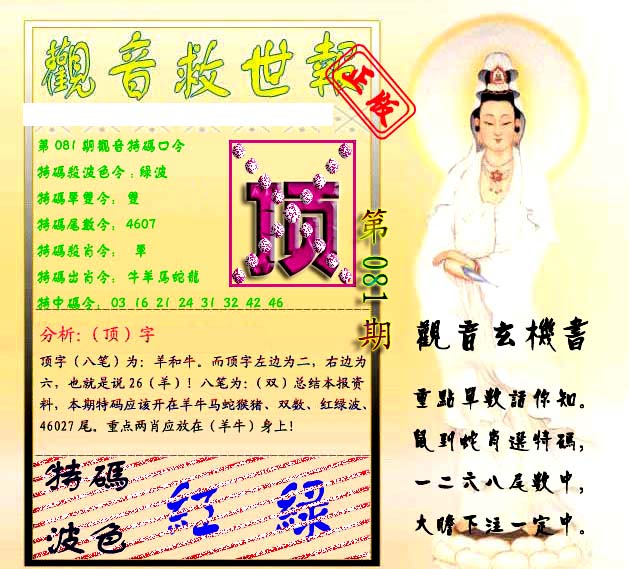 觀音救世報
正版
第081期觀音特碼口令
特碼殺波色令:綠波
特碼單雙令: 雙
特碼尾數令: 4607
特碼殺肖令: 單
特碼出肖令: 牛羊馬蛇龍
特中碼令: 03 16 21 24 31 32 42 46
顶
第081期
分析:（顶）字
顶字（八笔）为：羊和牛。而顶字左边为二，右边为
六，也就是说26（羊）！八笔为：（双）总结本报资
料，本期特码应该开在羊牛马蛇猴猪、双数、红绿波、
46027尾。重点两肖应放在（羊牛）身上！
特碼
波色
紅 綠
觀音玄機書
重點單数話你知。
鼠到蛇肖選特碼，
一二六八尾数中，
大瞻下注一定中。